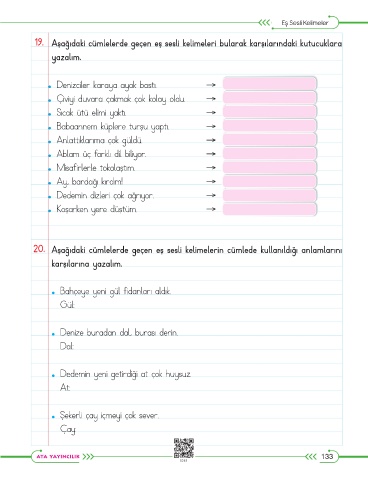 Eş Sesli Kelimeler
19. Aşağıdaki cümlelerde geçen eş sesli kelimeleri bularak karşılarındaki kutucuklara
yazalım.
Denizciler karaya ayak bastı. →
Çiviyi duvara çakmak çok kolay oldu. →
Sıcak ütü elimi yaktı. →
Babaannem küplere turşu yaptı. →
Anlattıklarıma çok güldü. →
Ablam üç farklı dil biliyor. →
Misafirlerle tokalaştım. →
Ay, bardağı kırdım! →
Dedemin dizleri çok ağrıyor. →
Koşarken yere düştüm. →
20. Aşağıdaki cümlelerde geçen eş sesli kelimelerin cümlede kullanıldığı anlamlarını
karşılarına yazalım.
Bahçeye yeni gül fidanları aldık.
Gül:
Denize buradan dal, burası derin.
Dal:
Dedemin yeni getirdiği at çok huysuz.
At:
Şekerli çay içmeyi çok sever.
Çay:
ATA YAYINCILIK
133